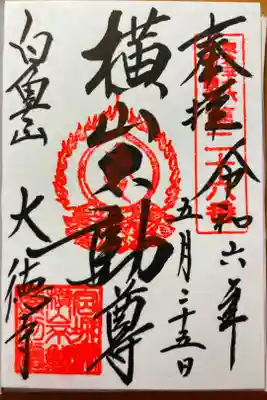 奉拝 令和六年
五月二十五日
横山不動尊
白魚山
大徳寺